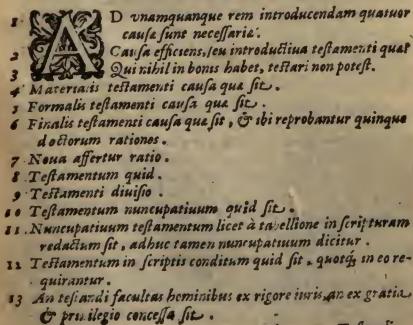 1 AD vnamquamque rem introducendam quatuor
causæ sunt necessariæ.
2 Causa efficiens, seu introductiua testamenti quæ?
3 Qui nihil in bonis habet, testari non potest.
4 Materialis testamenti causa quæ sit.
5 Formalis testamenti causa quæ sit.
6 Finalis testamenti causa quæ sit, & ibi reprobantur quinque
doctorum rationes.
7 Noua affertur ratio.
8 Testamentum quid.
9 Testamenti diuisio.
10 Testamentum nuncupatiuum quid sit.
11 Nuncupatiuum testamentum licet à tabellione in scripturam
redactum sit, adhuc tamen nuncupatiuum dicitur.
12 Testamentum in scriptis conditum quid sit, quotq́; in eo re-
quirantur.
13 An testandi facultas hominibus ex rigore iuris, an ex gratia
& priuilegio concessa sit.